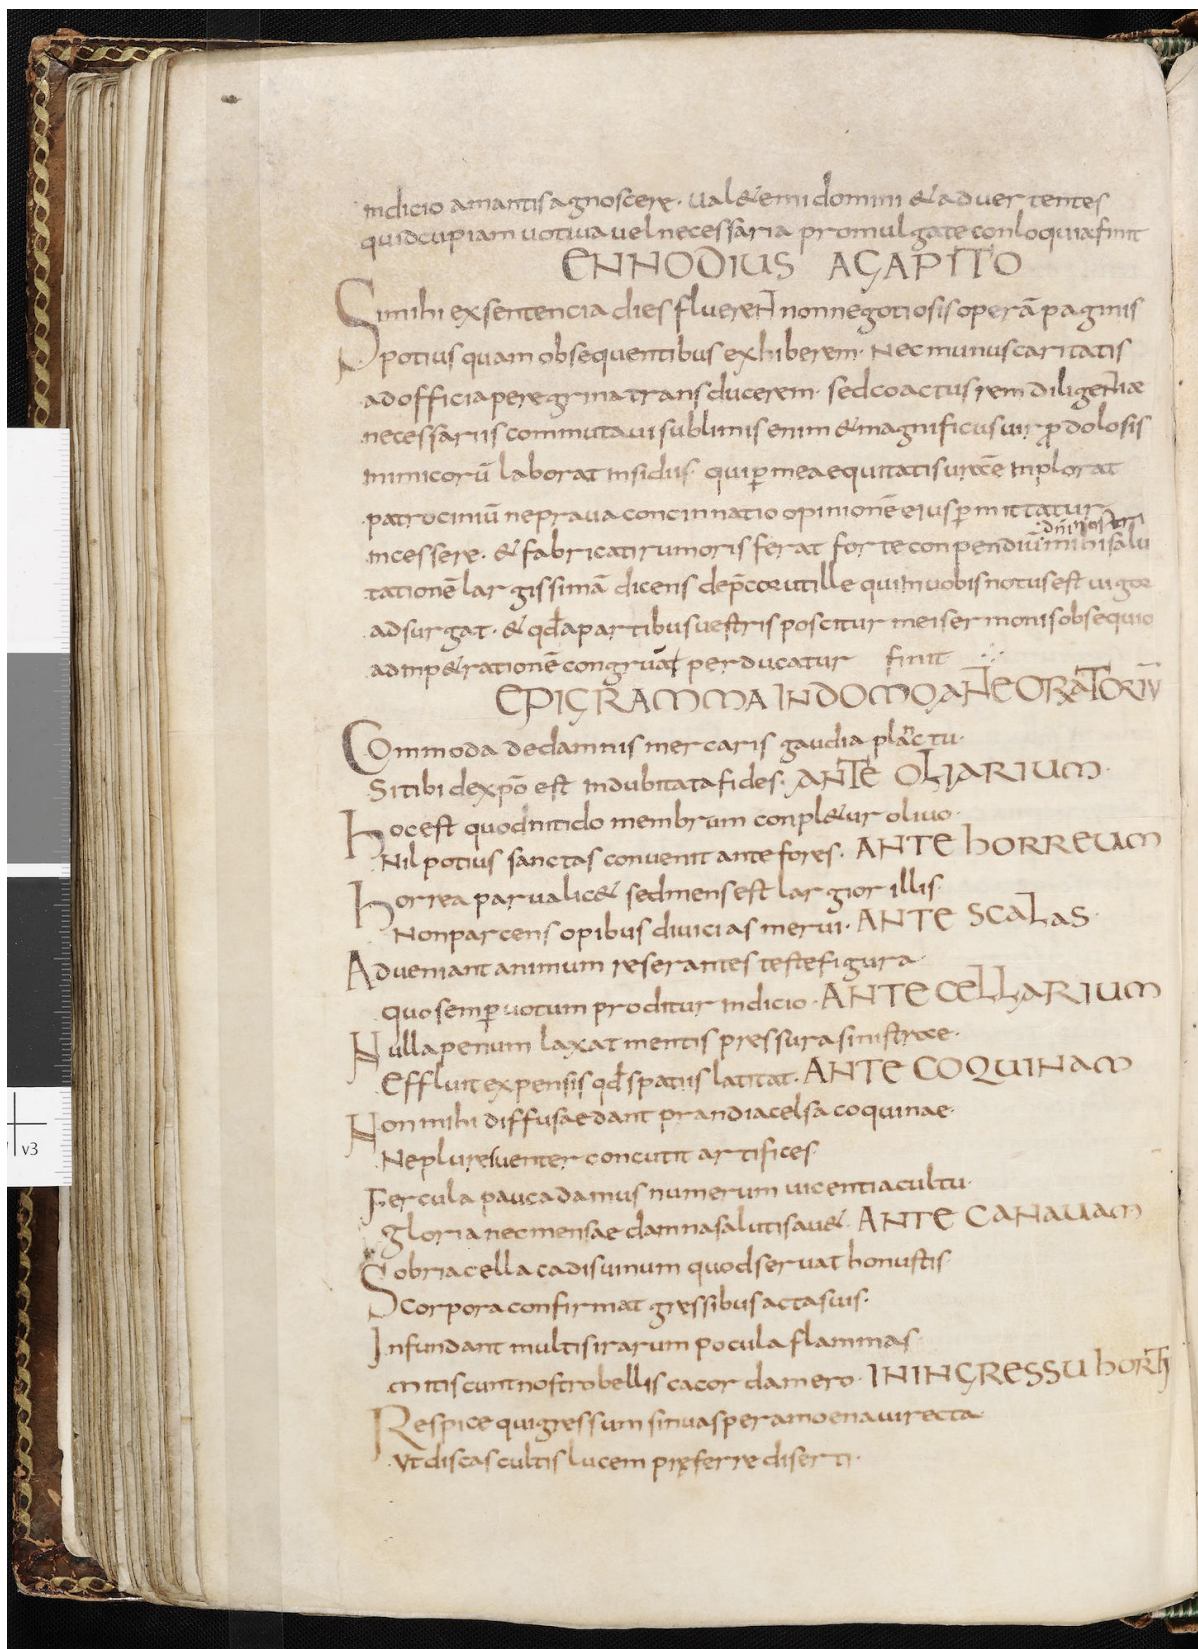 indicio amantis agnoscere. ual&e mi domini & aduertentes
quid cupiam uotiua uel necessaria promulgate conloquia finit
ENNODIUS AGAPITO
Si mihi ex sententia dies fluerent non negotiosis operā paginis
potius quam obsequentibus exhiberem. Nec munus caritatis
ad officia peregrina transducerem. sed coactus rem diligentiæ
necessariis commutaui sublimis enim & magnificus uir ꝓ dolosis
inimicorū laborat insidiis. qui ꝑ me aequitatis ur̄ae inplorat
patrociniū ne praua concinnatio opinionē eius ꝑmittatur
incessere. & fabricati rumoris ferat forte conpendiū dn̄i mihi salu
tationē largissimā dicens dep̄cor ut ille qui in uobis notus est uigor
adsurgat. & qd̄ a partibus uestris poscitur mei sermonis obsequio
ad inp&rationē congruāt perducatur finit
EPIGRAMMA IN DOMO ANTE ORATORIŪ
Commoda de damnis mercaris gaudia planctu.
Si tibi de xp̄o est indubitata fides. ANTE OLIARIUM.
Hoc est quod nitido membrum conpl&ur oliuo.
Nil potius sanctas conuenit ante fores. ANTE HORREUM
Horrea parua lic& sed mens est largior illis.
Non parcens opibus diuicias merui. ANTE SCALAS.
Adueniant animum reserantes teste figura.
quo semꝑ uotum proditur indicio. ANTE CELLARIUM
Nulla penum laxat mentis pressura sinistrae.
Effluit expensis qd̄ spatiis latitat. ANTE COQUINAM
Non mihi diffusae dant prandia celsa coquinae.
Ne plures uenter concutit artifices.
Fercula pauca damus numerum uicentia cultu.
gloria nec mensae damna salutis au&. ANTE CANAUAM
Sobria cella cadis uinum quod seruat honustis
Corpora confirmat gressibus acta suis.
Infundant multis irarum pocula flammas
mitiscunt nostro bellis cacor da mero. IN INGRESSU HORTI
Respice qui gressum sinuas per amoena uirecta
Vt discas cultis lucem pręferre diserti.